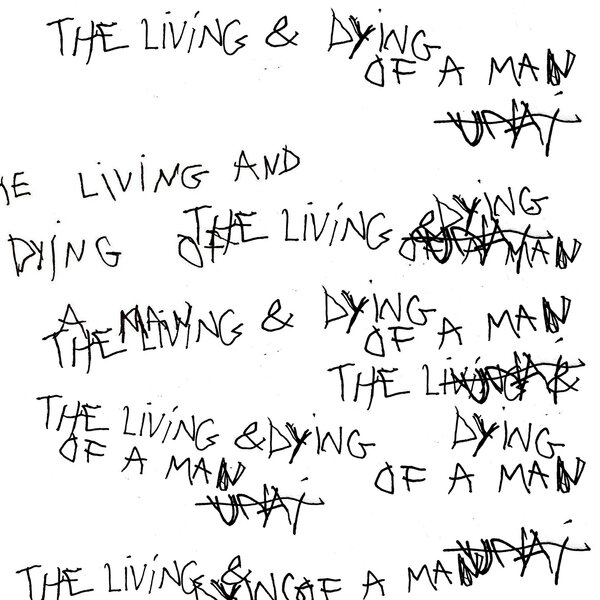 THE LIVING & DYING
OF A MAN
UPAI
LIVING AND
THE LIVING & DYING
DYING OF
OF A MAN
A MAN
THE LIVING & DYING
OF A MAN
THE LIVING &
THE LIVING & DYING
DYING
OF A MAN
OF A MAN
UPAI
UPAI
THE LIVING &
DYING OF A MAN